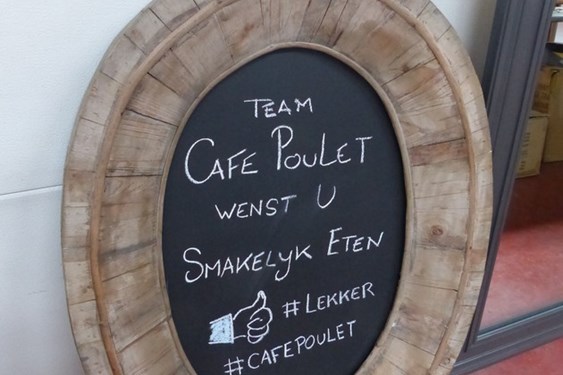 TEAM
CAFE POULET
WENST U
SMAKELYK ETEN
#LEKKER
#CAFEPOULET